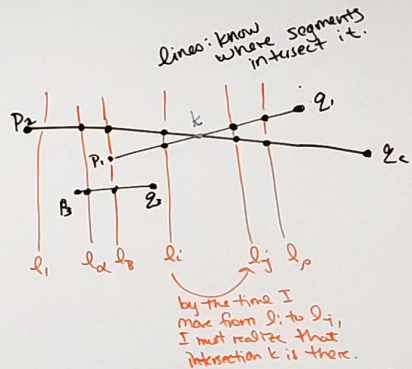 lines: know
where segments
intersect it.
P2
k
q1
P1
q2
P3
q3
l1
lα
lβ
li
lj
lρ
by the time I
move from li to lj,
I must realize that
intersection k is there.